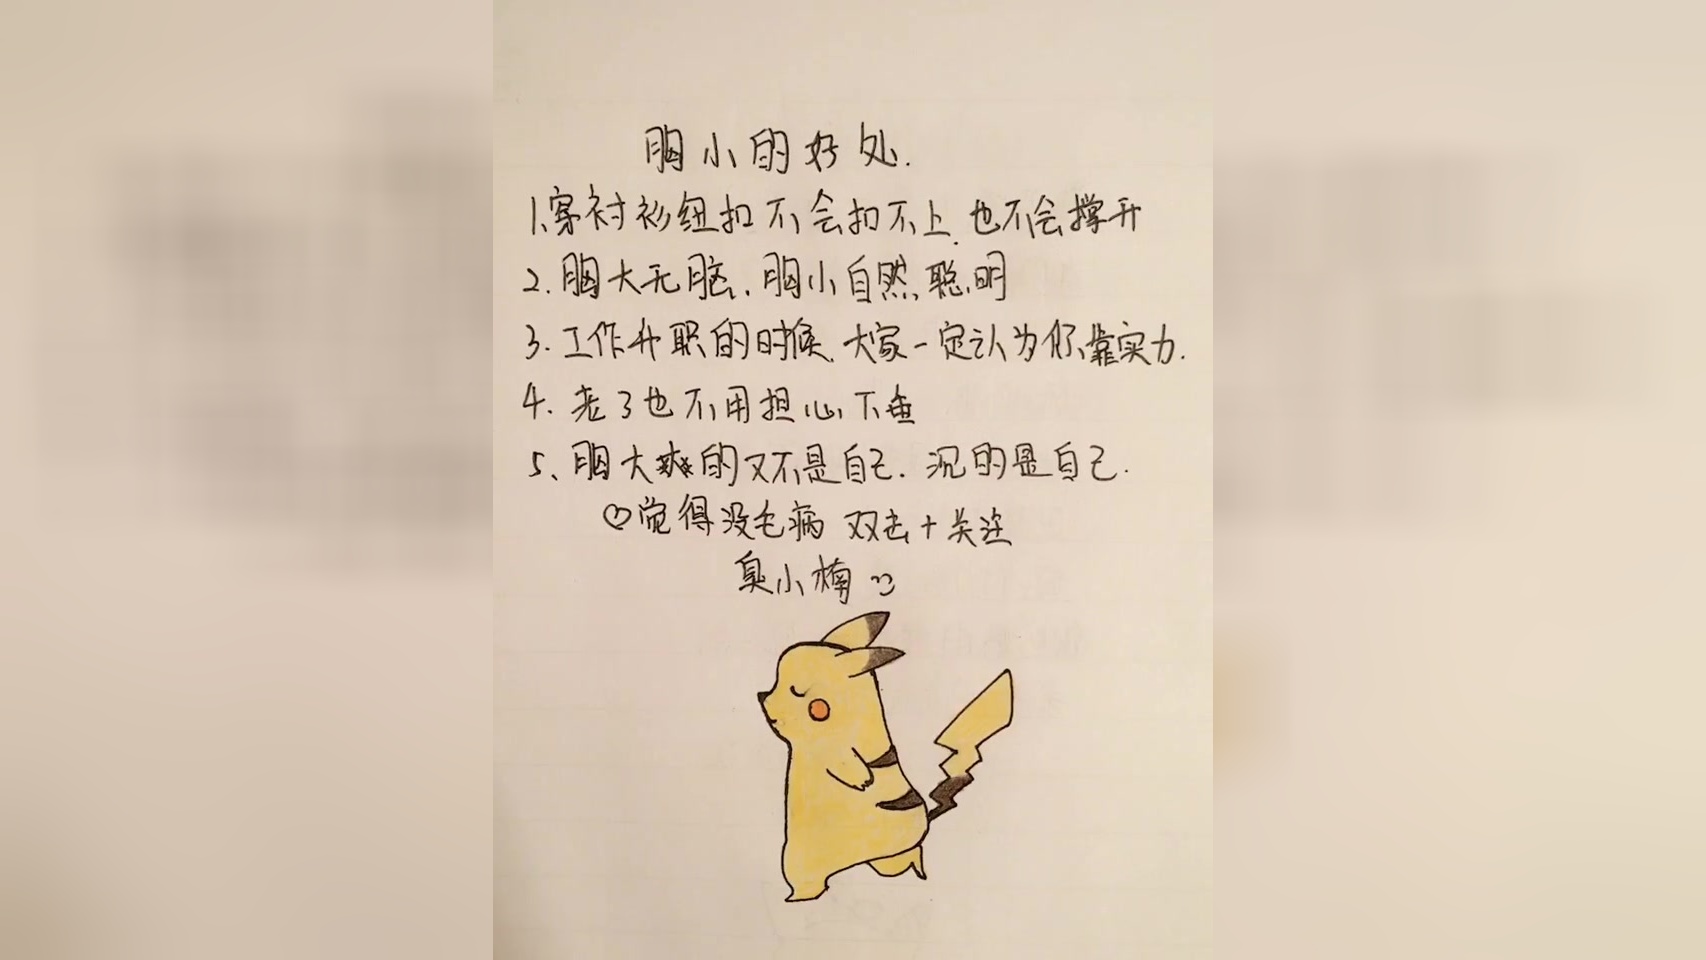 胸小的好处.
1.穿衬衫纽扣不会扣不上.也不会撑开
2.胸大无脑.胸小自然聪明
3.工作升职的时候.大家一定认为你靠实力.
4.老了也不用担心下垂
5、胸大爽的又不是自己.沉的是自己.
♡觉得没毛病 双击+关注
臭小楠